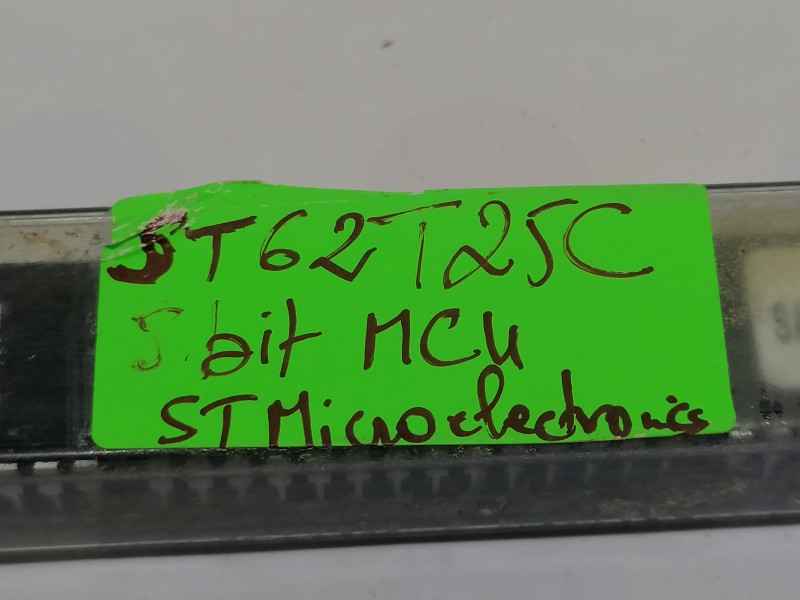 ST62T25C
bit MCU
STMicroelectronics